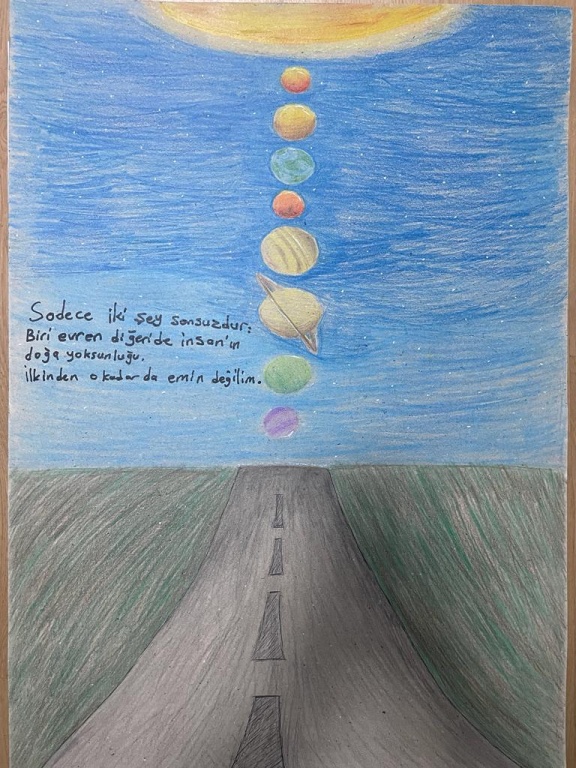 Sadece iki şey sonsuzdur:
Biri evren diğeri'de insan'ın
doğa yoksunluğu.
ilkinden o kadar da emin değilim.